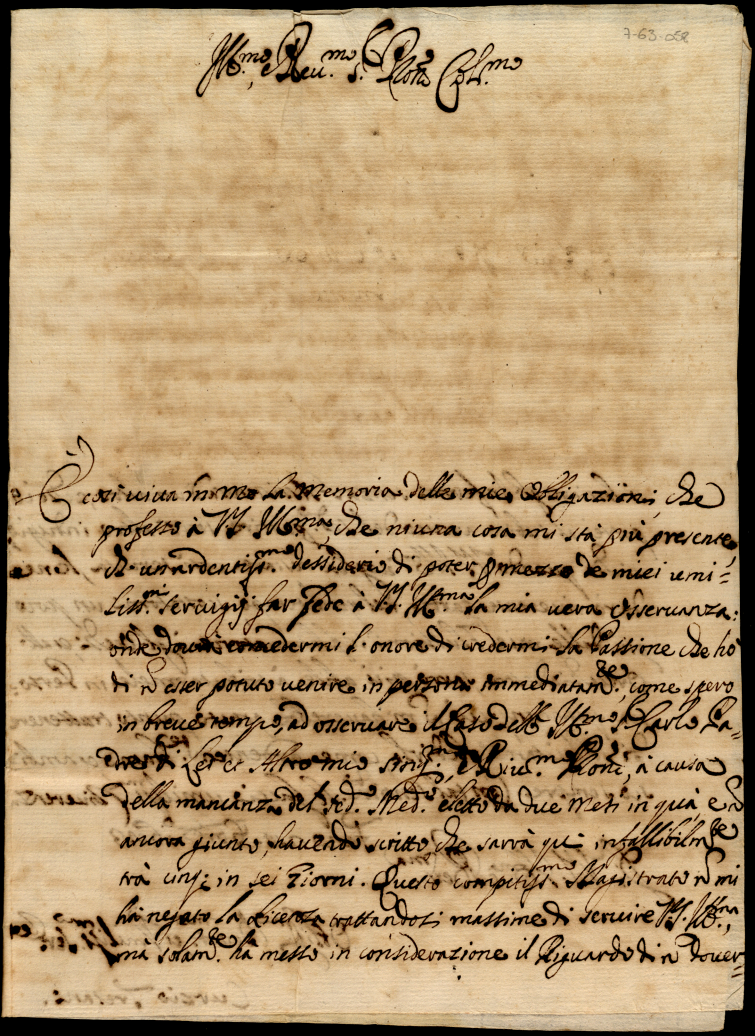 7-63-058
Ill.mo, e Rev.mo S.r P.rone Col.mo
È così viva in me la memoria delle mie obligazioni, che
professo à V.S. Ill.ma, che niuna cosa mi stà più presente,
ch'un ardentiss.mo dessiderio di poter p mezzo de miei umi=
liss.mi servigij far fede à V.S. Ill.ma la mia vera osservanza:
onde concedermi l'onore di credermi la Passione che hò
di ñ esser potuto venire in persona immediatam.te, come spero
in breve tempo, ad osservare il caso dell' Ill.mo S.r Carlo Pa=
dre di Lei et Altro mio P.rone, à causa
della mancanza del Med.o eletto da due mesi in quà, e ñ
ancora giunto, havendo scritto che sarrà quì infallibilm.te
trà cinq; in sei Giorni. Questo compitiss.mo Magistrato ñ mi
hà negato la Licenza trattandosi massime di servire V.S. Ill.ma,
mà solam.te hà messo in considerazione il Riguardo di ñ dover=